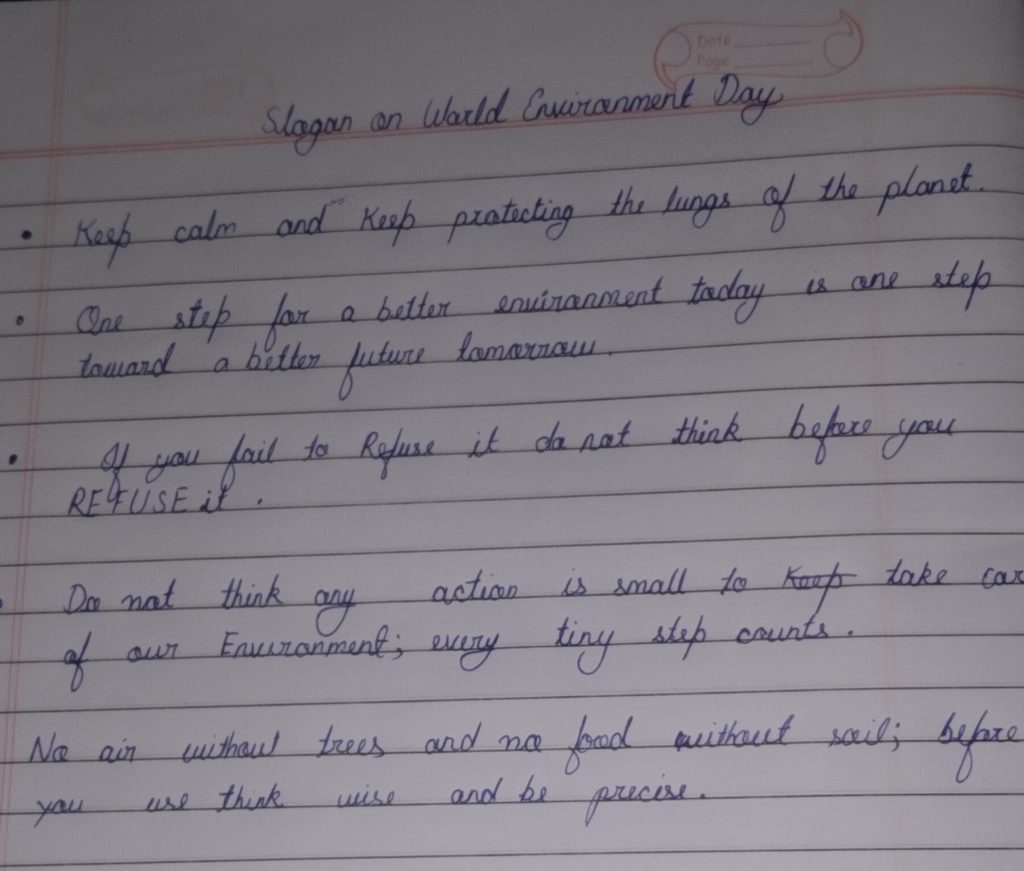 Date
Page
Slogan on World Environment Day
• Keep calm and Keep protecting the lungs of the planet.
• One step for a better environment today is one step
toward a better future tomorrow.
• If you fail to Refuse it do not think before you
REFUSE it.
• Do not think any action is small to Keep take car
of our Environment; every tiny step counts.
No air without trees and no food without soil; before
you use think wise and be precise.